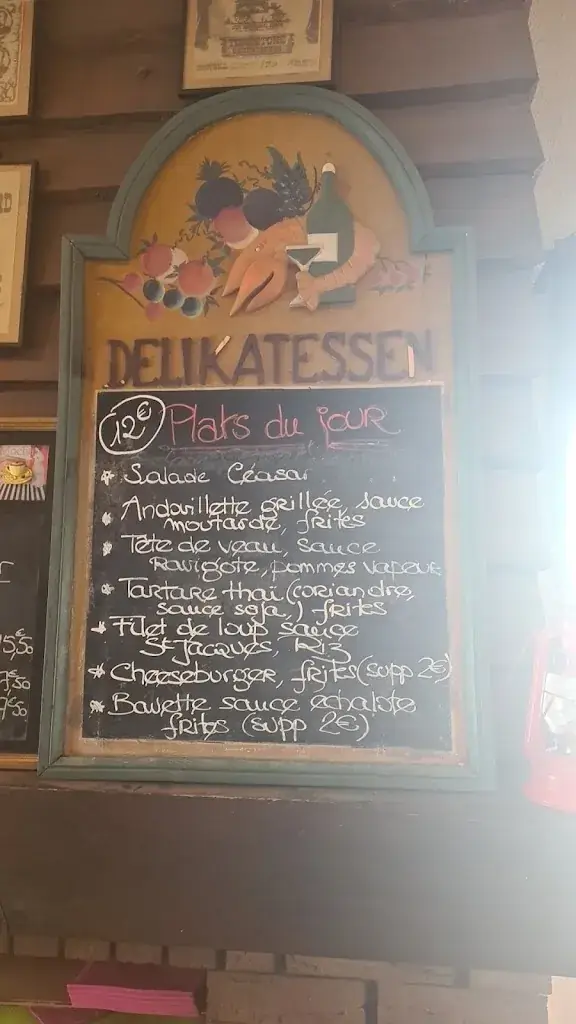 DELIKATESSEN
12€ Plats du jour
* Salade Céasar
* Andouillette grillée, sauce
moutarde, frites
* Tête de veau, sauce
Ravigote, pommes vapeur
* Tartare thaï (coriandre,
sauce soja,) frites
* Filet de loup sauce
St-Jacques, Riz
* Cheeseburger, frites (supp 2€)
* Bavette sauce échalote
frites (supp 2€)